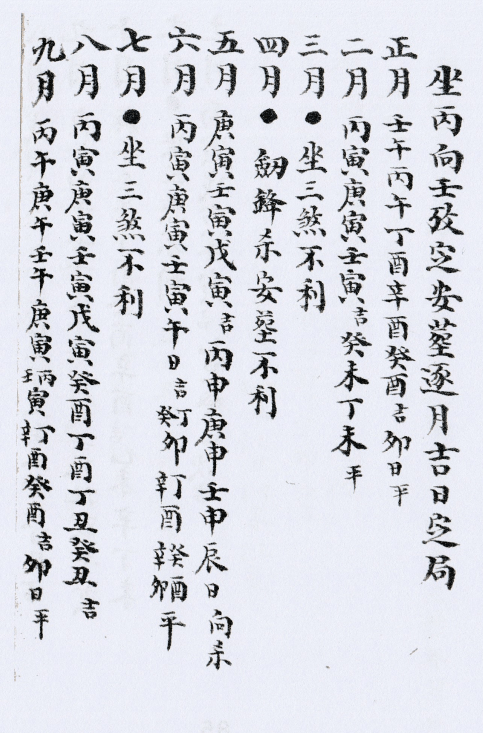 坐丙向壬发定安葬逐月吉日定局
正月 壬午丙午丁酉辛酉癸酉吉卯日平
二月 丙寅庚寅壬寅吉癸未丁未平
三月●坐三煞不利
四月●劔鋒杀安葬不利
五月 庚寅壬寅戊寅吉丙申庚申壬申辰日向杀
六月 丙寅庚寅壬寅午日吉丁癸卯辛丁酉癸辛酉卯平
七月●坐三煞不利
八月 丙寅庚寅壬寅戊寅癸酉丁酉丁丑癸丑吉
九月 丙午庚午壬午庚寅丙壬寅丁辛酉癸酉吉卯日平